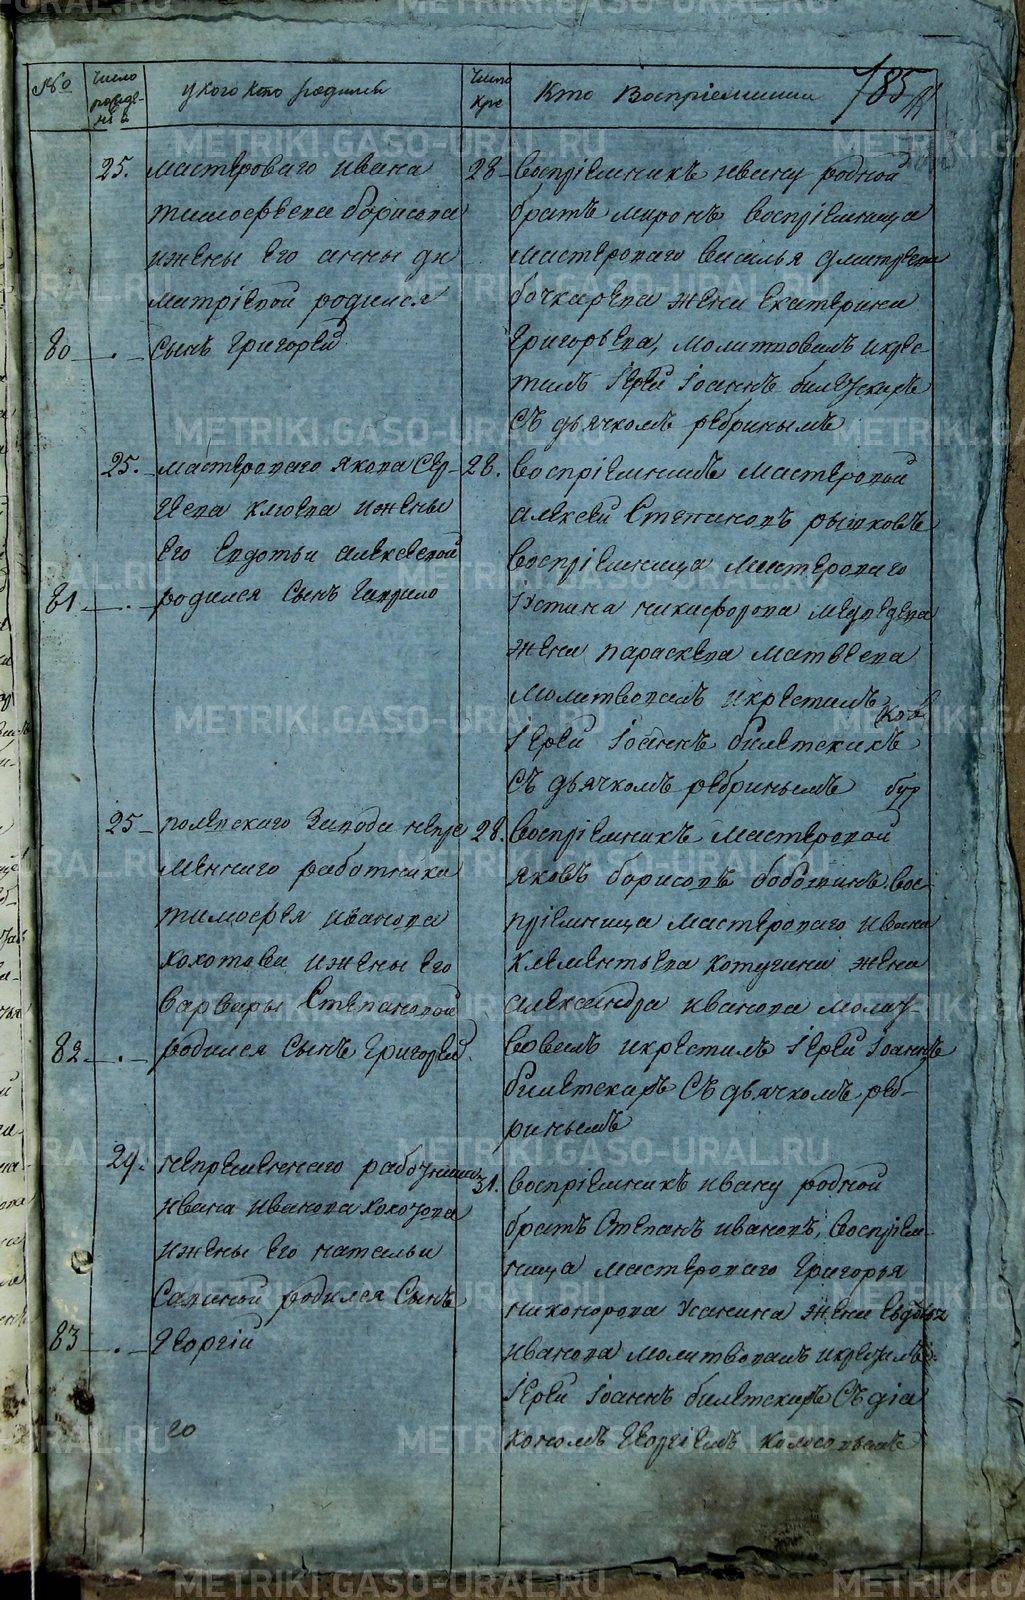 №
Число рожде- нія
У кого кто родился
Число кре
Кто Воспріемники
785
25. мастероваго ивана
тимофеева борисова
ижены его анны ди
митріевой родился
80 сынъ григорей
28 воспріемникъ ивану родной
братъ миронъ воспріемница
мастероваго василья дмитрева
бочкарева жена екатерина
григорьева, молитвовалъ икрес
тилъ іерей іоаннъ
съ дьячкомъ ребринымъ
25. мастероваго якова сер-
геева клюева ижены
его евдотьи алексевой
81 родился сынъ гаврило
28. воспріемникъ мастеровой
алексей степановъ рышковъ
воспріемница мастероваго
іустина никифорова медведева
жена параскева матвеева
молитвовалъ икрестилъ
іерей іоаннъ
съ дьячкомъ ребринымъ
25 полевскаго завода непре
меннаго работника
тимофея иванова
хохотова ижены его
варвары степановой
82 родился сынъ григорей
28. воспріемникъ мастеровой
яковъ борисовъ вос
пріемница мастероваго ивана
клементьева котугина жена
александра иванова молит-
вовалъ икрестилъ іерей іоаннъ
съ дьячкомъ реб-
ринымъ
29. непременнаго работника
ивана иванова
ижены его натальи
савиной родился сынъ
83 георгій
31. воспріемникъ ивану родной
братъ степанъ ивановъ, воспріем-
ница мастероваго григорья
никонорова усанина жена евдотья
иванова молитвовалъ икрестилъ
іерей іоаннъ съ діа
кономъ георгіемъ колосовымъ
METRIKI.GASO-URAL.RU